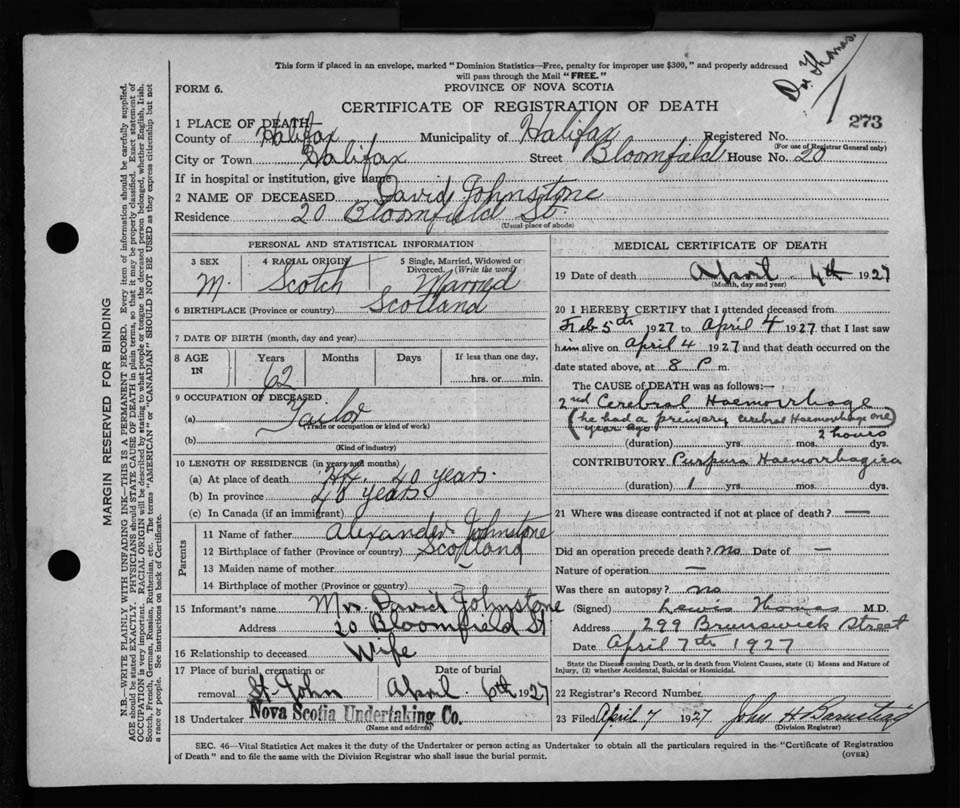 This form if placed in an envelope, marked "Dominion Statistics—Free, penalty for improper use $300," and properly addressed
will pass through the Mail "FREE."
Dr. Thomas
FORM 6.
PROVINCE OF NOVA SCOTIA
CERTIFICATE OF REGISTRATION OF DEATH
273
1 PLACE OF DEATH—
County of Halifax Municipality of Halifax Registered No.
(For use of Registrar General only)
City or Town Halifax Street Bloomfield House No. 20
If in hospital or institution, give name
2 NAME OF DECEASED David Johnstone
Residence 20 Bloomfield St.
(Usual place of abode)
PERSONAL AND STATISTICAL INFORMATION
3 SEX M. 4 RACIAL ORIGIN Scotch 5 Single, Married, Widowed or Divorced. (Write the word) Married
6 BIRTHPLACE (Province or country) Scotland
7 DATE OF BIRTH (month, day and year)
8 AGE IN Years 62 Months Days If less than one day, hrs. or min.
9 OCCUPATION OF DECEASED
(a) Tailor
(Trade or occupation or kind of work)
(b)
(Kind of industry)
10 LENGTH OF RESIDENCE (in years and months)
(a) At place of death Hfx. 40 years.
(b) In province 40 years
(c) In Canada (if an immigrant)
Parents
11 Name of father Alexander Johnstone
12 Birthplace of father (Province or country) Scotland
13 Maiden name of mother —
14 Birthplace of mother (Province or country)
15 Informant's name Mrs. David Johnstone
Address 20 Bloomfield St
16 Relationship to deceased Wife
17 Place of burial, cremation or removal St. John Date of burial April 6th 1927
18 Undertaker Nova Scotia Undertaking Co.
(Name and address)
MEDICAL CERTIFICATE OF DEATH
19 Date of death April 4th 1927
(Month, day and year)
20 I HEREBY CERTIFY that I attended deceased from
Feb 5th 1927 to April 4 1927 that I last saw
him alive on April 4 1927 and that death occurred on the
date stated above, at 8 P m.
The CAUSE of DEATH was as follows:—
2nd Cerebral Haemorrhage
(he had a primary cerebral Haemorrhage one
year ago
2 hours
(duration) yrs. mos. dys.
CONTRIBUTORY Purpura Haemorrhagica
(duration) 1 yrs. mos. dys.
21 Where was disease contracted if not at place of death? —
Did an operation precede death? no Date of —
Nature of operation —
Was there an autopsy? no
(Signed) Lewis Thomas M.D.
Address 299 Brunswick Street
Date April 7th 1927
State the Disease causing Death, or in death from Violent Causes, state (1) Means and Nature of
Injury, (2) whether Accidental, Suicidal or Homicidal.
22 Registrar's Record Number
23 Filed April 7 1927 John H Barnstead
(Division Registrar)
SEC. 46—Vital Statistics Act makes it the duty of the Undertaker or person acting as Undertaker to obtain all the particulars required in the "Certificate of Registration
of Death" and to file the same with the Division Registrar who shall issue the burial permit.
(OVER)
MARGIN RESERVED FOR BINDING
N.B.—WRITE PLAINLY WITH UNFADING INK—THIS IS A PERMANENT RECORD. Every item of information should be carefully supplied.
AGE should be stated EXACTLY. PHYSICIANS should STATE CAUSE OF DEATH in plain terms, so that it may be properly classified. Exact statement of
OCCUPATION is very important. RACIAL ORIGIN will be described by stating to what people or tongue the deceased person belonged, whether English, Irish,
Scotch, French, German, Russian, Ruthenian, etc. The terms "AMERICAN" or "CANADIAN" SHOULD NOT BE USED as they express citizenship but not
a race or people. See instructions on back of Certificate.